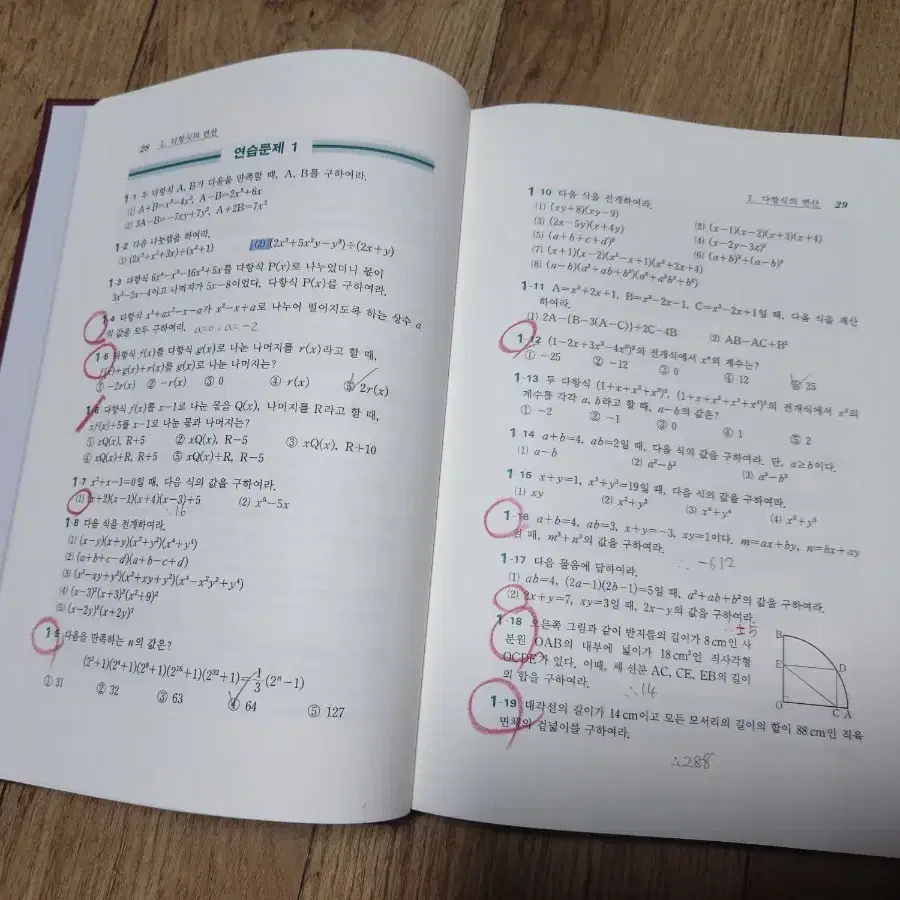 28 1. 다항식의 연산
연습문제 1
1-1 두 다항식 A, B가 다음을 만족할 때, A, B를 구하여라.
(1) A+B=x³-4x², A-B=2x³+6x
(2) 3A-B=-7xy+7y², A+2B=7x²
1-2 다음 나눗셈을 하여라.
(1) (2x³+x²+3x)÷(x²+1) (2) (2x³+5x²y-y³)÷(2x+y)
1-3 다항식 6x⁴-x³-16x²+5x를 다항식 P(x)로 나누었더니 몫이
3x²-2x-4이고 나머지가 5x-8이었다. 다항식 P(x)를 구하여라.
1-4 다항식 x³+ax²-x-a가 x²-x+a로 나누어 떨어지도록 하는 상수 a
의 값을 모두 구하여라. a=0, a=-2
1-5 다항식 f(x)를 다항식 g(x)로 나눈 나머지를 r(x)라고 할 때,
f(x)+g(x)+r(x)를 g(x)로 나눈 나머지는?
① -2r(x) ② -r(x) ③ 0 ④ r(x) ⑤ 2r(x)
1-6 다항식 f(x)를 x-1로 나눈 몫을 Q(x), 나머지를 R라고 할 때,
xf(x)+5를 x-1로 나눈 몫과 나머지는?
① xQ(x), R+5 ② xQ(x), R-5 ③ xQ(x), R+10
④ xQ(x)+R, R+5 ⑤ xQ(x)+R, R-5
1-7 x²+x-1=0일 때, 다음 식의 값을 구하여라.
(1) (x+2)(x-1)(x+4)(x-3)+5 (2) x⁵-5x
∴16
1-8 다음 식을 전개하여라.
(1) (x-y)(x+y)(x²+y²)(x⁴+y⁴)
(2) (a+b+c-d)(a+b-c+d)
(3) (x²-xy+y²)(x²+xy+y²)(x⁴-x²y²+y⁴)
(4) (x-3)²(x+3)²(x²+9)²
(5) (x-2y)³(x+2y)³
1-9 다음을 만족하는 n의 값은?
(2²+1)(2⁴+1)(2⁸+1)(2¹⁶+1)(2³²+1)=1/3(2ⁿ-1)
① 31 ② 32 ③ 63 ④ 64 ⑤ 127
1. 다항식의 연산 29
1-10 다음 식을 전개하여라.
(1) (xy+8)(xy-9) (2) (x-1)(x-2)(x+3)(x+4)
(3) (2x-5y)(x+4y) (4) (x-2y-3z)²
(5) (a+b+c+d)² (6) (a+b)³+(a-b)³
(7) (x+1)(x-2)(x²-x+1)(x²+2x+4)
(8) (a-b)(a²+ab+b²)(a⁶+a³b³+b⁶)
1-11 A=x²+2x+1, B=x²-2x-1, C=x²-2x+1일 때, 다음 식을 계산
하여라.
(1) 2A-{B-3(A-C)}+2C-4B (2) AB-AC+B²
1-12 (1-2x+3x²-4x³)²의 전개식에서 x⁴의 계수는?
① -25 ② -12 ③ 0 ④ 12 ⑤ 25
1-13 두 다항식 (1+x+x²+x³)³, (1+x+x²+x³+x⁴)³의 전개식에서 x³의
계수를 각각 a, b라고 할 때, a-b의 값은?
① -2 ② -1 ③ 0 ④ 1 ⑤ 2
1-14 a+b=4, ab=2일 때, 다음 식의 값을 구하여라. 단, a≥b이다.
(1) a-b (2) a²-b² (3) a³-b³
1-15 x+y=1, x³+y³=19일 때, 다음 식의 값을 구하여라.
(1) xy (2) x²+y² (3) x⁴+y⁴ (4) x⁵+y⁵
1-16 a+b=4, ab=3, x+y=-3, xy=1이다. m=ax+by, n=bx+ay
일 때, m³+n³의 값을 구하여라.
∴ -612
1-17 다음 물음에 답하여라.
(1) ab=4, (2a-1)(2b-1)=5일 때, a²+ab+b²의 값을 구하여라.
(2) 2x+y=7, xy=3일 때, 2x-y의 값을 구하여라.
∴±5
1-18 오른쪽 그림과 같이 반지름의 길이가 8cm인 사
분원 OAB의 내부에 넓이가 18cm²인 직사각형
OCDE가 있다. 이때, 세 선분 AC, CE, EB의 길이
의 합을 구하여라.
∴14
B
E D
O C A
1-19 대각선의 길이가 14cm이고 모든 모서리의 길이의 합이 88cm인 직육
면체의 겉넓이를 구하여라.
∴288